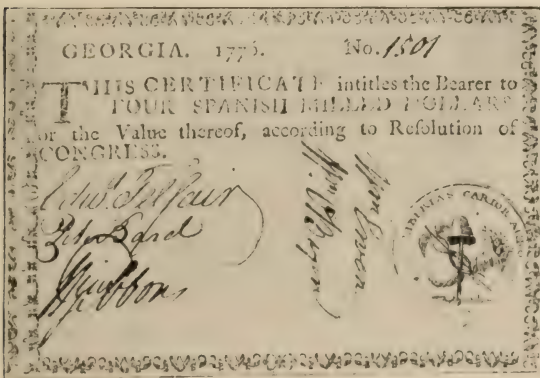 GEORGIA. 1776. No. 1501
THIS CERTIFICATE intitles the Bearer to
FOUR SPANISH MILLED DOLLARS
or the Value thereof, according to Resolution of
CONGRESS.
Edwd. Telfair
Gibbons
LIBERTAS CARIOR